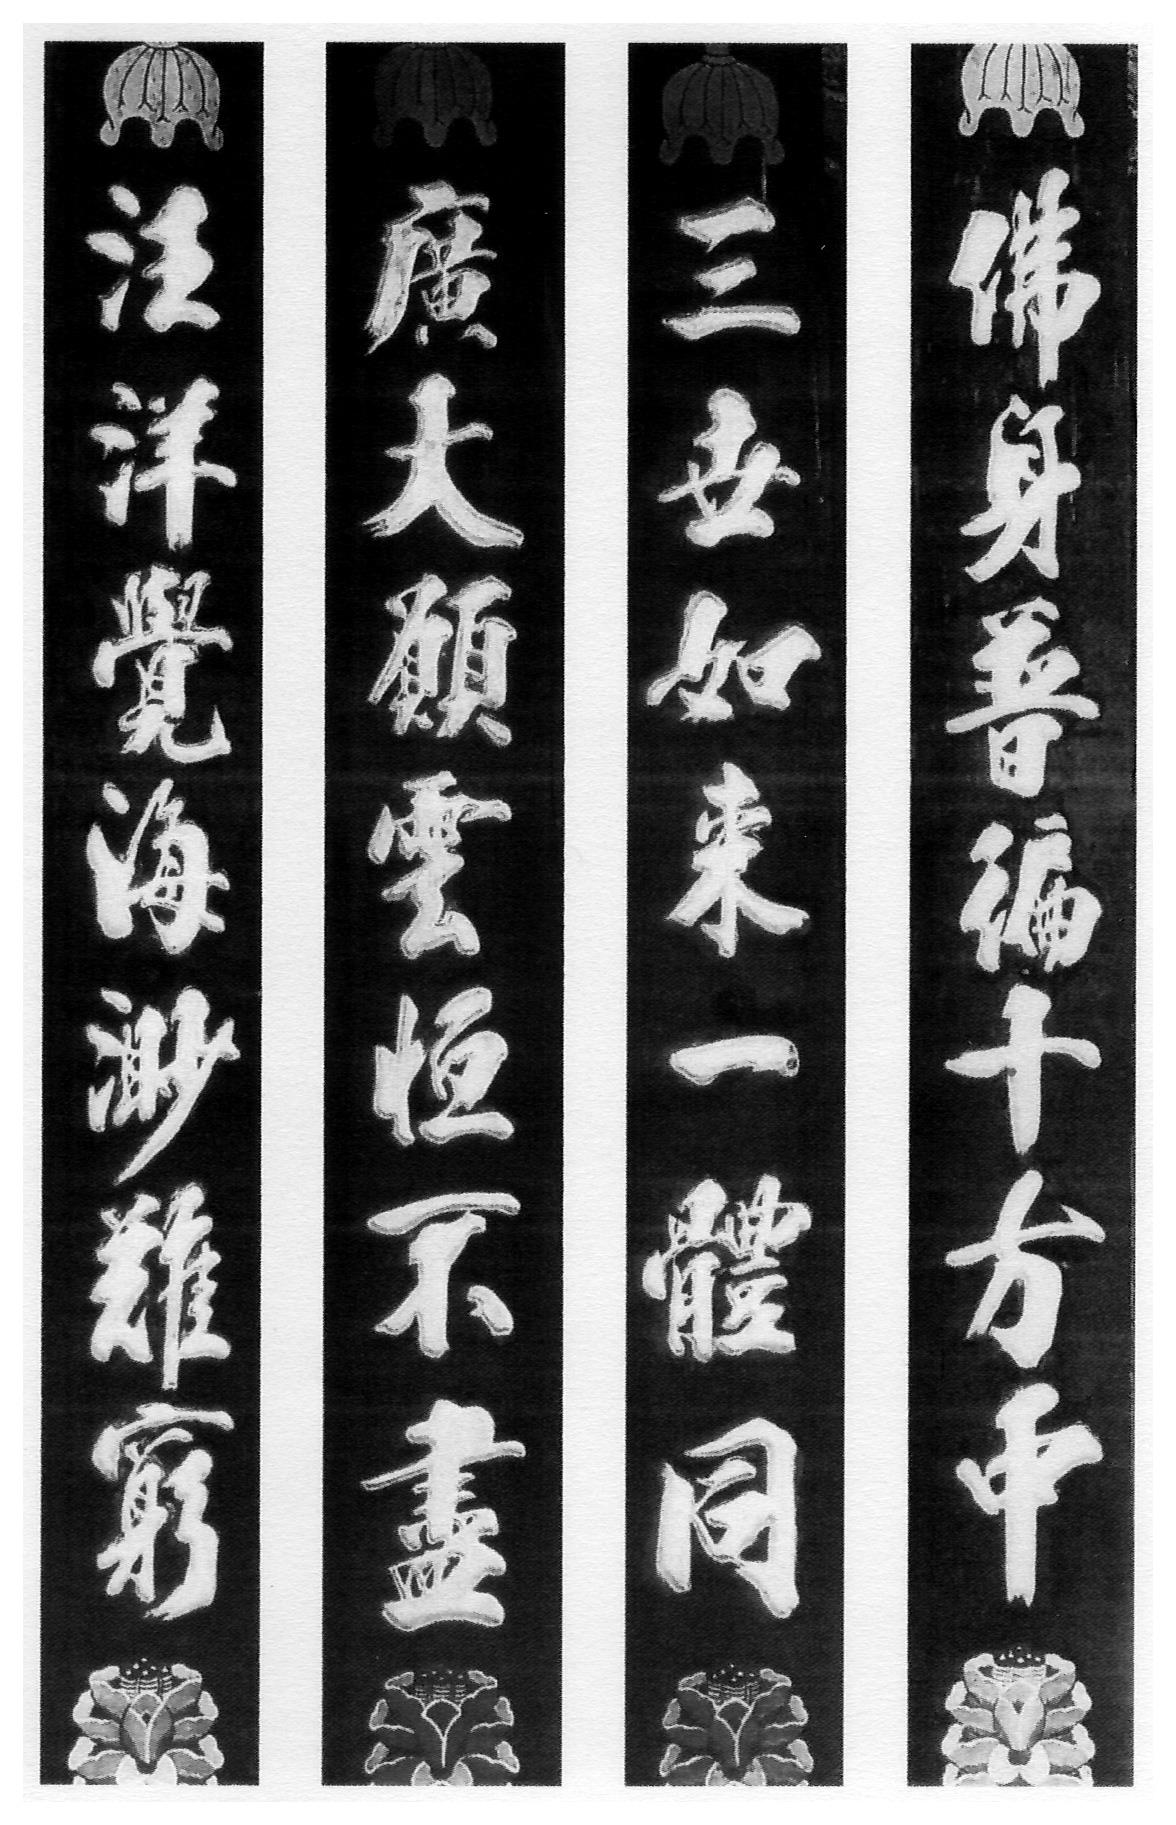 佛身普徧十方中
三世如來一體同
廣大願雲恒不盡
汪洋覺海渺難窮